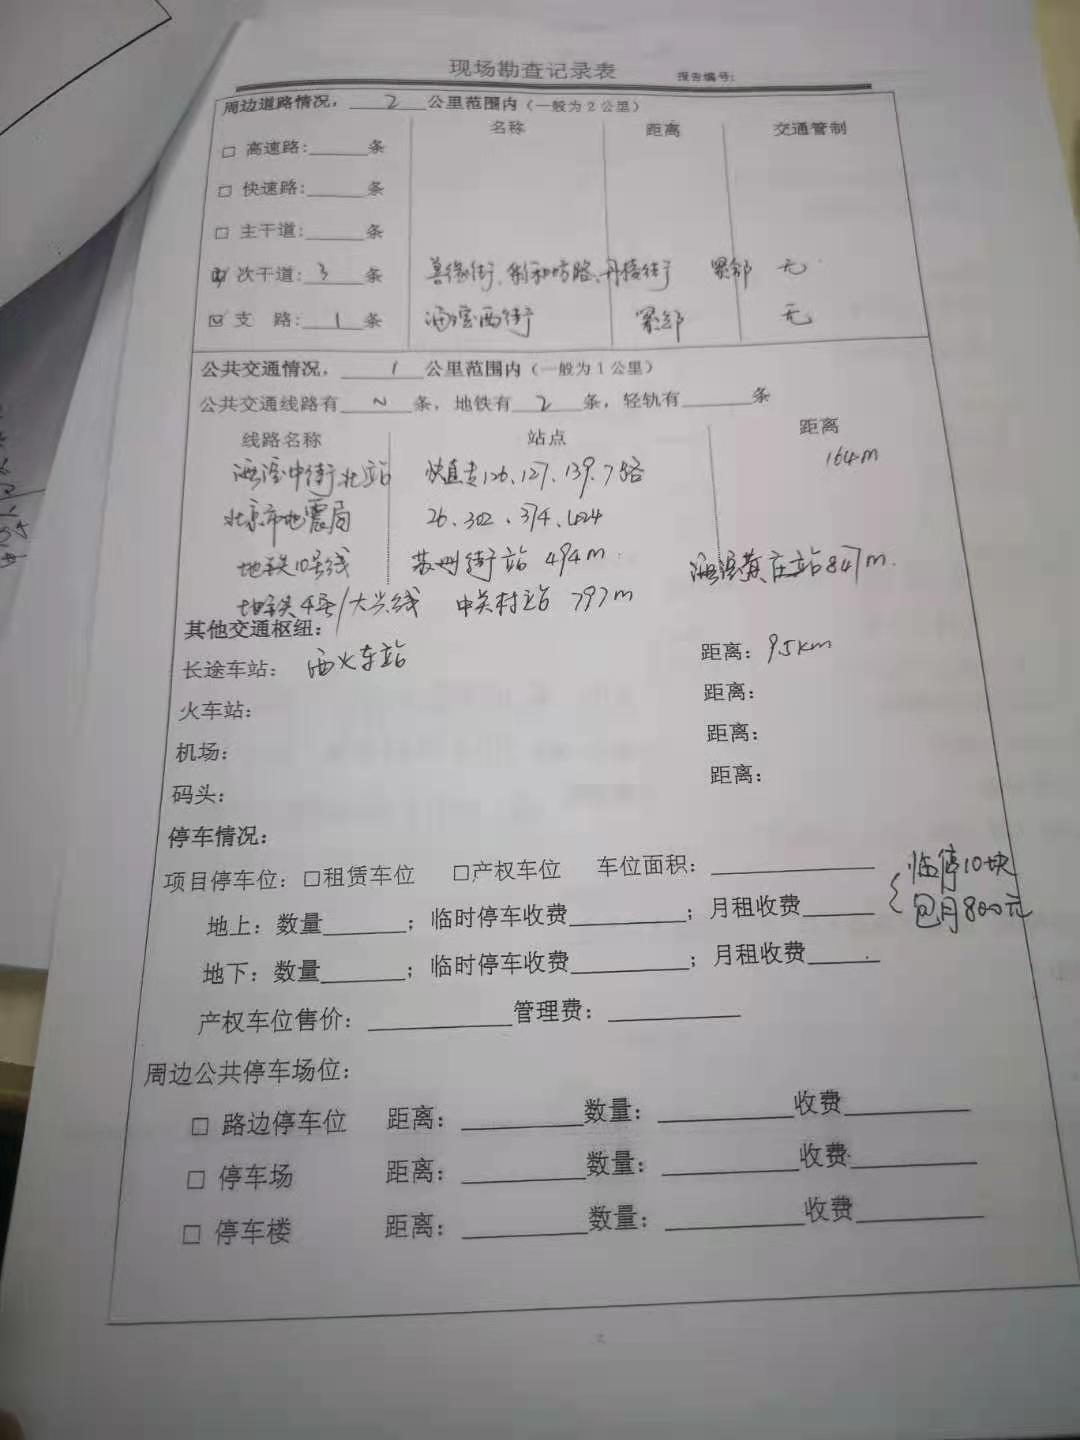 现场勘查记录表 报告编号:
周边道路情况, 2 公里范围内(一般为2公里)
名称 距离 交通管制
□ 高速路:______条
□ 快速路:______条
□ 主干道:______条
☑ 次干道: 3 条 善缘街、彩和坊路、丹棱街 紧邻 无
☑ 支 路: 1 条 海淀西街 紧邻 无
公共交通情况, 1 公里范围内(一般为1公里)
公共交通线路有 N 条, 地铁有 2 条, 轻轨有______条
线路名称 站点 距离
海淀中街北站 快直专126、127、139、7路 164m
北京市地震局 26、302、374、424
地铁10号线 苏州街站 494m 海淀黄庄站847m.
地铁4号/大兴线 中关村站 797m
其他交通枢纽:
长途车站: 西火车站 距离: 9.5km
火车站: 距离:
机场: 距离:
码头: 距离:
停车情况:
项目停车位: □租赁车位 □产权车位 车位面积:____________ 临停10块
地上: 数量______; 临时停车收费________; 月租收费_____ 包月800元
地下: 数量______; 临时停车收费________; 月租收费_____
产权车位售价: __________管理费: _________
周边公共停车场位:
□ 路边停车位 距离: _________数量: __________收费_________
□ 停车场 距离: _________数量: __________收费_________
□ 停车楼 距离: _________数量: __________收费_________